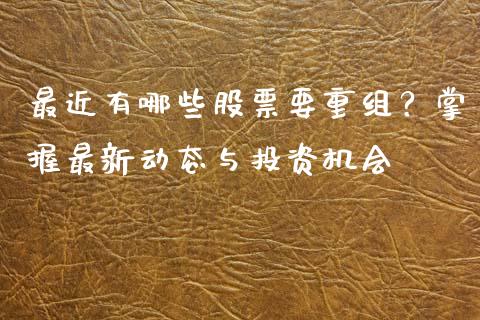 最近有哪些股票要重组？掌
握最新动态与投资机会